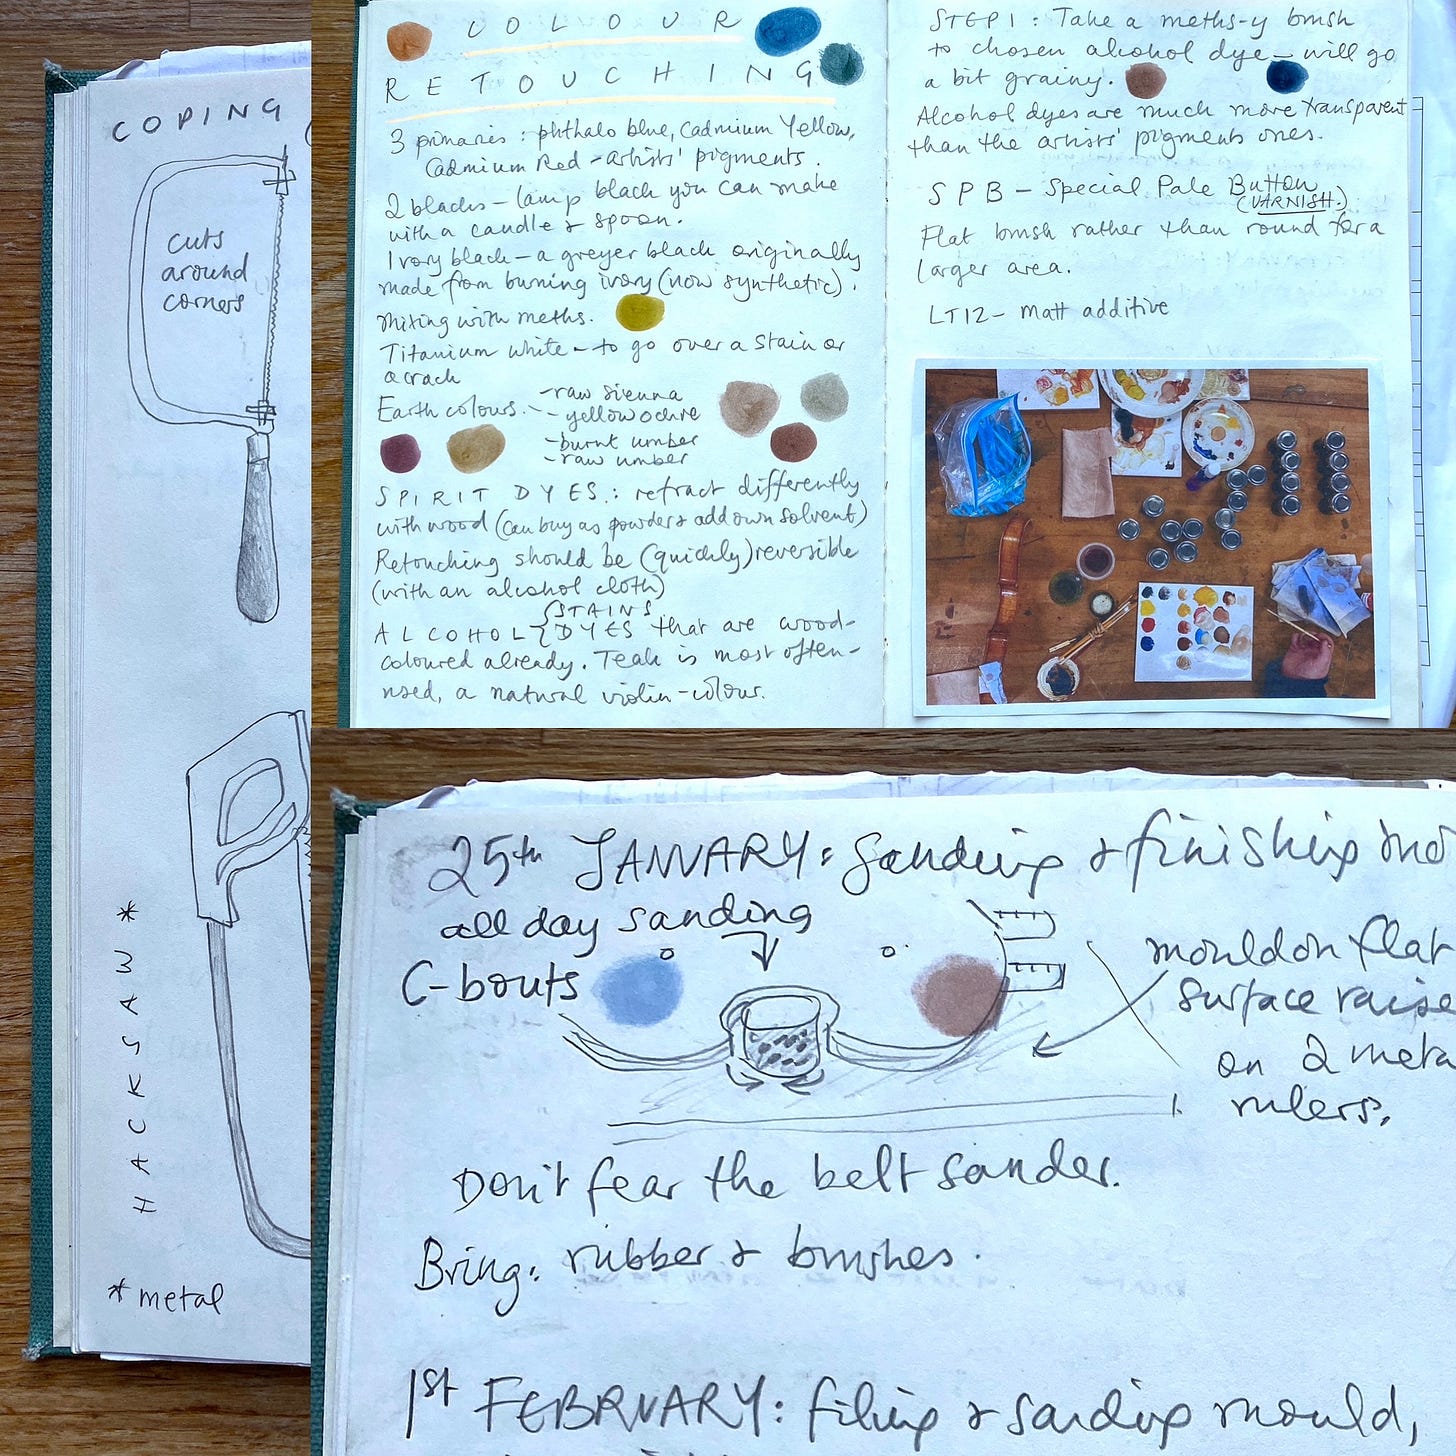 COPING
cuts
around
corners
HACKSAW *
* metal
COLOUR
RETOUCHING
3 primaries: phthalo blue, Cadmium Yellow,
Cadmium Red - artists' pigments.
2 blacks - lamp black you can make
with a candle & spoon.
Ivory black - a greyer black originally
made from burning ivory (now synthetic).
Mixing with meths.
Titanium white - to go over a stain or
a crack
Earth colours. - raw sienna
- yellow ochre
- burnt umber
- raw umber
SPIRIT DYES: refract differently
with wood (can buy as powder & add own solvent)
Retouching should be (quickly) reversible
(with an alcohol cloth)
ALCOHOL { STAINS
DYES that are wood-
coloured already. Teak is most often-
used, a natural violin-colour.
STEP 1: Take a meths-y brush
to chosen alcohol dye - will go
a bit grainy.
Alcohol dyes are much more transparent
than the artists' pigments ones.
SPB - Special Pale Button
(VARNISH.)
Flat brush rather than round for a
larger area.
LT12 - matt additive
25th JANUARY: Sanding & finishing mo
all day sanding
C-bouts
mould on flat
surface raise
on 2 meta
rulers.
Don't fear the belt sander.
Bring: rubber & brushes.
1st FEBRUARY: filing & sanding mould,